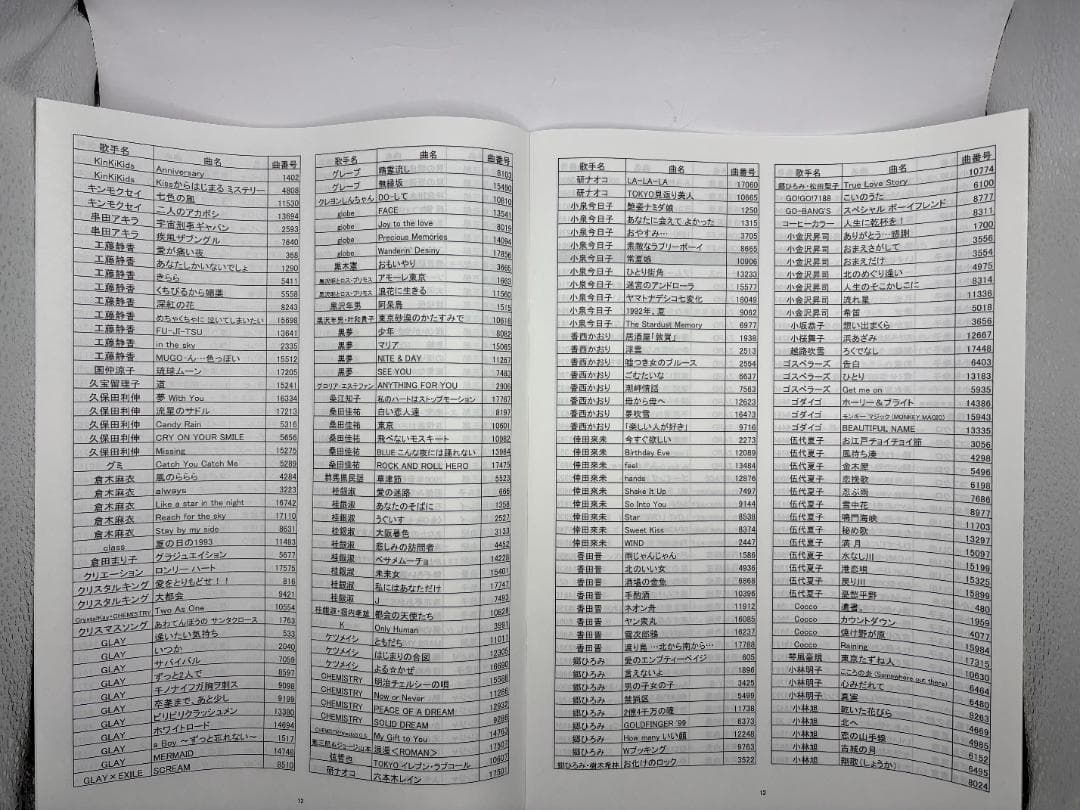 歌手名 曲名 曲番号
KinKiKids Anniversary 1402
KinKiKids Kissからはじまるミステリー 4808
キンモクセイ 七色の風 11530
キンモクセイ 二人のアカボシ 13694
串田アキラ 宇宙刑事ギャバン 2593
串田アキラ 疾風ザブングル 7640
工藤静香 愛が痛い夜 368
工藤静香 あなたしかいないでしょ 1290
工藤静香 きらら 5411
工藤静香 くちびるから媚薬 5558
工藤静香 深紅の花 8243
工藤静香 めちゃくちゃに泣いてしまいたい 15698
工藤静香 FU-JI-TSU 13641
工藤静香 in the sky 2335
工藤静香 MUGO・ん…色っぽい 15512
国仲涼子 琉球ムーン 17205
久宝留理子 道 15241
久保田利伸 夢 With You 16334
久保田利伸 流星のサドル 17213
久保田利伸 Candy Rain 5316
久保田利伸 CRY ON YOUR SMILE 5656
久保田利伸 Missing 15275
グミ Catch You Catch Me 5289
倉木麻衣 風のららら 4284
倉木麻衣 always 3223
倉木麻衣 Like a star in the night 16742
倉木麻衣 Reach for the sky 17110
倉木麻衣 Stay by my side 8631
class 夏の日の1993 11493
倉田まり子 グラジュエイション 5677
クリエーション ロンリー ハート 17575
クリスタルキング 愛をとりもどせ！！ 816
クリスタルキング 大都会 9421
CrystalKay×CHEMISTRY Two As One 10554
クリスマスソング あわてんぼうのサンタクロース 1763
GLAY 逢いたい気持ち 533
GLAY いつか 2040
GLAY サバイバル 7059
GLAY ずっと2人で 8597
GLAY 9098
GLAY 卒業まで、あと少し 9199
GLAY ビリビリクラッシュメン 13390
GLAY ホワイトロード 14694
GLAY a Boy ～ずっと忘れない～ 1517
GLAY MERMAID 14746
GLAY×EXILE SCREAM 8510
12
歌手名 曲名 曲番号
グレープ 精霊流し 8103
グレープ 無縁坂 15490
クレヨンしんちゃん DO-して 10810
globe FACE 13541
globe Joy to the love 8019
globe Precious Memories 14094
globe Wanderin' Desiny 17856
黒木憲 おもいやり 3665
黒沢明とロス・プリモス アモーレ東京 1663
黒沢明とロス・プリモス 浪花に生きる 11560
黒沢年男 阿呆鳥 1515
黒沢年男・叶和貴子 東京砂漠のかたすみで 10616
黒夢 少年 8082
黒夢 マリア 15065
黒夢 NITE & DAY 11267
黒夢 SEE YOU 7483
グロリア・エステファン ANYTHING FOR YOU 2906
桑江知子 私のハートはストップモーション 17767
桑田佳祐 白い恋人達 8197
桑田佳祐 東京 10601
桑田佳祐 飛べないモスキート 10982
桑田佳祐 BLUE こんな夜には踊れない 13984
桑田佳祐 ROCK AND ROLL HERO 17475
群馬県民謡 草津節 5523
桂銀淑 愛の迷路 666
桂銀淑 あなたのそばに 1358
桂銀淑 うぐいす 2527
桂銀淑 大阪暮色 3133
桂銀淑 悲しみの訪問者 4452
桂銀淑 ベサメムーチョ 14228
桂銀淑 未来女 15401
桂銀淑 私にはあなただけ 17747
桂銀淑 J 7493
桂銀淑・堀内孝雄 都会の天使たち 10628
K Only Human 3981
ケツメイシ ともだち 11011
ケツメイシ はじまりの合図 12305
ケツメイシ よる☆かぜ 16690
CHEMISTRY 明治チェルシーの唄 15566
CHEMISTRY Now or Never 11286
CHEMISTRY PEACE OF A DREAM 12932
CHEMISTRY SOLID DREAM 9286
My Gift to You 14763
浪漫<ROMAN> 17301
弦哲也 TOKYO イレブン・ラブコール 10607
研ナオコ 六本木レイン 17501
歌手名 曲名 曲番号
研ナオコ LA-LA-LA 17060
研ナオコ TOKYO見返り美人 10665
小泉今日子 艶姿ナミダ娘 1250
小泉今日子 あなたに会えてよかった 1315
小泉今日子 おやすみ… 3705
小泉今日子 素敵なラブリーボーイ 8665
小泉今日子 常夏娘 10906
小泉今日子 ひとり街角 13233
小泉今日子 迷宮のアンドローラ 15577
小泉今日子 ヤマトナデシコ七変化 16049
小泉今日子 1992年、夏 9062
小泉今日子 The Stardust Memory 6977
香西かおり 居酒屋「敦賀」 1938
香西かおり 浮雲 2513
香西かおり 嘘つき女のブルース 2554
香西かおり ごむたいな 6637
香西かおり 潮岬情話 7563
香西かおり 母から母へ 12623
香西かおり 夢吹雪 16473
香西かおり 「楽しい人が好き」 9716
倖田來未 今すぐ欲しい 2273
倖田來未 Birthday Eve 12089
倖田來未 feel 13484
倖田來未 hands 12876
倖田來未 Shake It Up 7497
倖田來未 So Into You 9144
倖田來未 Star 8538
倖田來未 Sweet Kiss 8374
倖田來未 WIND 2447
香田晋 雨じゃんじゃん 1586
香田晋 北のいい女 4936
香田晋 酒場の金魚 6868
香田晋 手酌酒 10396
香田晋 ネオン舟 11912
香田晋 ヤン衆丸 16085
香田晋 雪次郎鴉 16237
香田晋 渡り鳥 …北から南から… 17788
郷ひろみ 愛のエンプティーペイジ 605
郷ひろみ 言えないよ 1896
郷ひろみ 男の子女の子 3425
郷ひろみ 禁猟区 5499
郷ひろみ 2億4千万の瞳 11738
郷ひろみ GOLDFINGER '99 6373
郷ひろみ How many いい顔 12248
郷ひろみ Wブッキング 9763
郷ひろみ・樹木希林 お化けのロック 3522
13
歌手名 曲名 曲番号
郷ひろみ・松田聖子 True Love Story 10774
GO!GO!7188 こいのうた 6100
GO-BANG'S スペシャル ボーイフレンド 8777
コーヒーカラー 人生に乾杯を！ 8311
小金沢昇司 ありがとう…感謝 1700
小金沢昇司 おまえさがして 3556
小金沢昇司 おまえだけ 3554
小金沢昇司 北のめぐり逢い 4975
小金沢昇司 人生のそこかしこに 8314
小金沢昇司 流れ星 11336
小金沢昇司 希笛 5018
小坂恭子 想い出まくら 3656
小桜舞子 浜あざみ 12667
越路吹雪 ろくでなし 17448
ゴスペラーズ 告白 6403
ゴスペラーズ ひとり 13183
ゴスペラーズ Get me on 5935
ゴダイゴ ホーリー＆ブライト 14386
ゴダイゴ モンキー マジック(MONKEY MAGIC) 15943
ゴダイゴ BEAUTIFUL NAME 13335
伍代夏子 お江戸チョイチョイ節 3056
伍代夏子 風待ち湊 4298
伍代夏子 金木犀 5496
伍代夏子 恋挽歌 6198
伍代夏子 忍ぶ雨 7686
伍代夏子 雪中花 8977
伍代夏子 鳴門海峡 11703
伍代夏子 秘め歌 13297
伍代夏子 満月 15097
伍代夏子 水なし川 15199
伍代夏子 港恋唄 15325
伍代夏子 戻り川 15899
伍代夏子 憂愁平野
Cocco 遺書。
Cocco カウントダウン 4077
Cocco 焼け野が原 15984
Cocco Raining 17315
琴風豪規 東京たずね人 10630
小林明子 こころの糸 (Somewhere out there) 6464
小林明子 心みだれて 6480
小林明子 真実 8263
小林旭 乾いた花びら 4669
小林旭 北へ 4985
小林旭 恋の山手線 6152
小林旭 古城の月 6495
小林旭 翔歌(しょうか) 8024